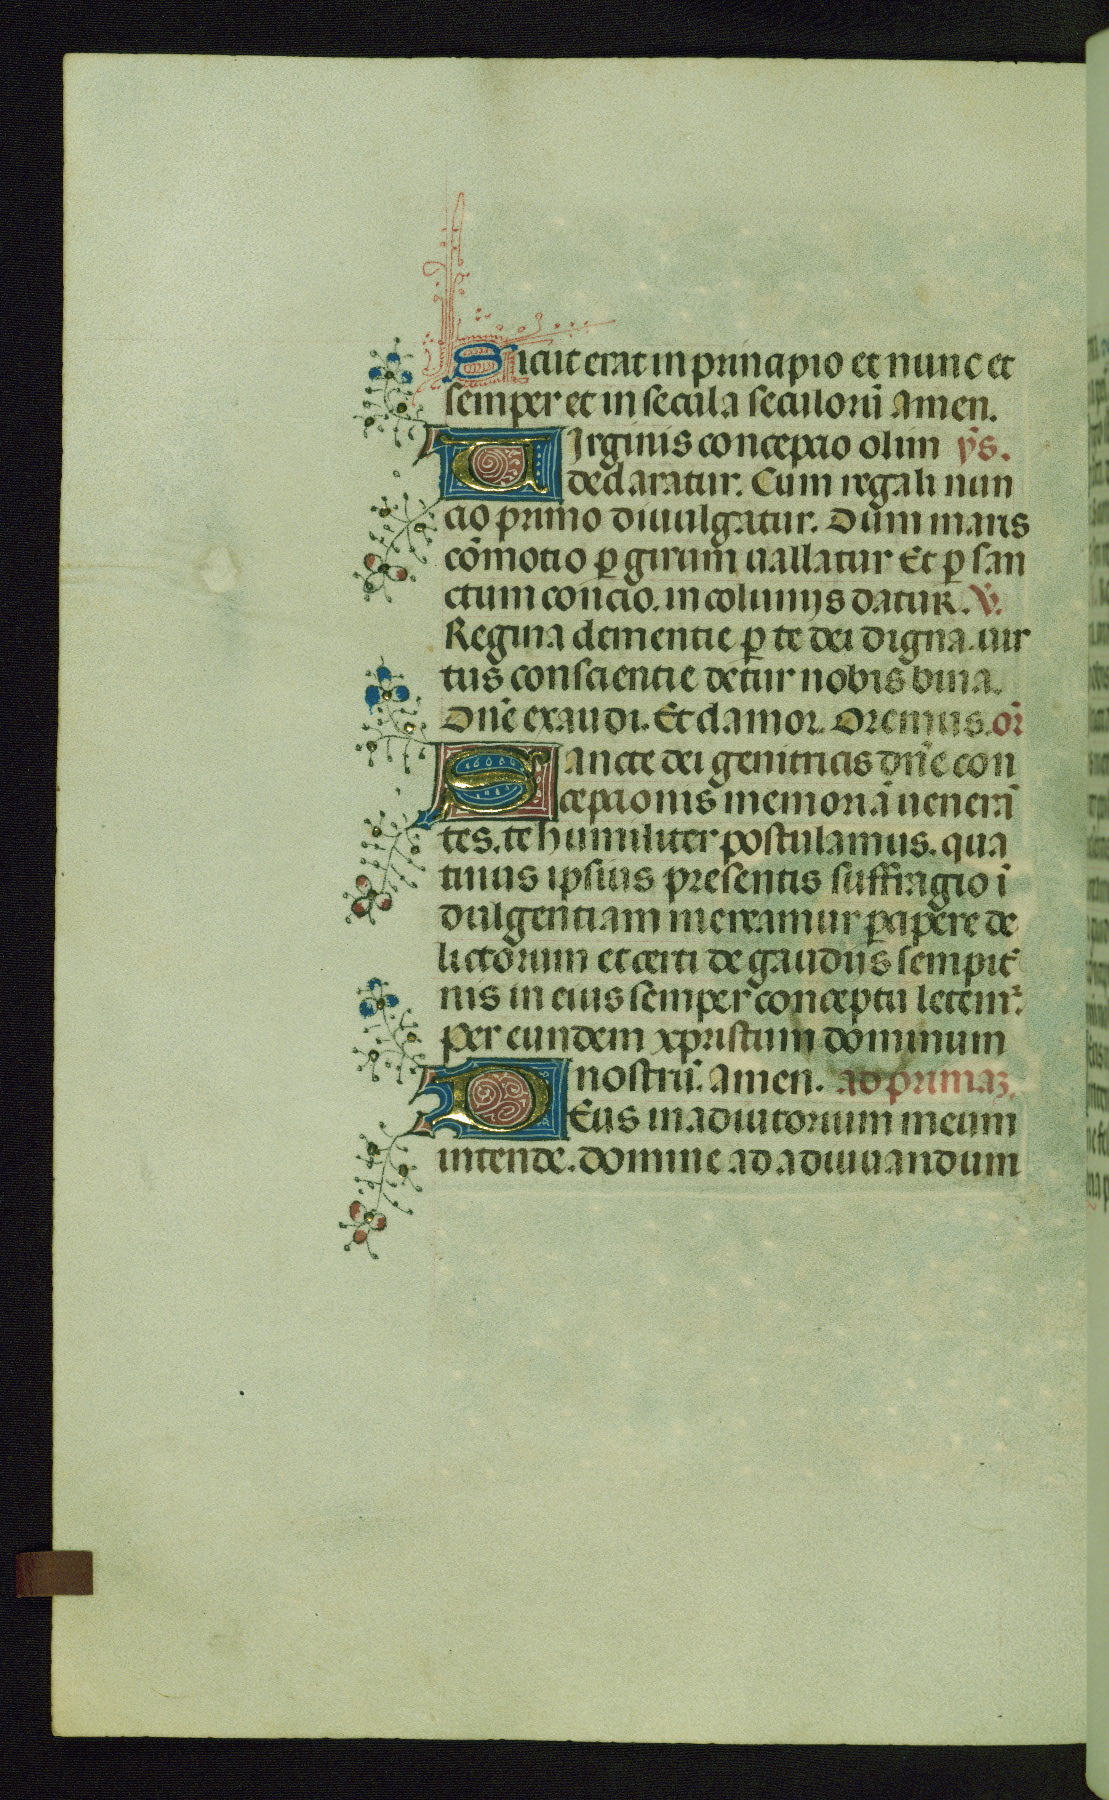 Sicut erat in principio et nunc et
semper et in secula seculoru᷑ amen.
Virginis concepcio olim ỹs.
declaratur. Cum regali nun
cio primo diuulgatur. Dum maris
co᷑motio ꝑ girum uallatur Et ꝑ san
ctum concio. in colimijs datur. ỹ.
Regina clementie ꝑ te dei digna. uir
tus conscientie detur nobis bina.
Dn̄e exaudi. Et clamor. Oremus. or̄
Sancte dei genitricis dn̄e con
cepcionis memoriā uenerā
tes. te humiliter postulamus. qua
tinus ipsius presentis suffragio ī
dulgentiam mereamur ꝑcipere de
lictorum et certi de gaudijs sempit̄
nis in eius semper conceptu letem̄.
per eundem xpristum dominum
nostrū. amen. ad primaȝ.
Deus in adiutorium meum
intende. domine ad adiuuandum